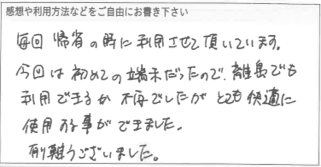 感想や利用方法などをご自由にお書き下さい
毎回 帰省の時に利用させて頂いています。
今回は初めての端末だったので、離島でも
利用できるか不安でしたが とても快適に
使用する事ができました。
有難うございました。